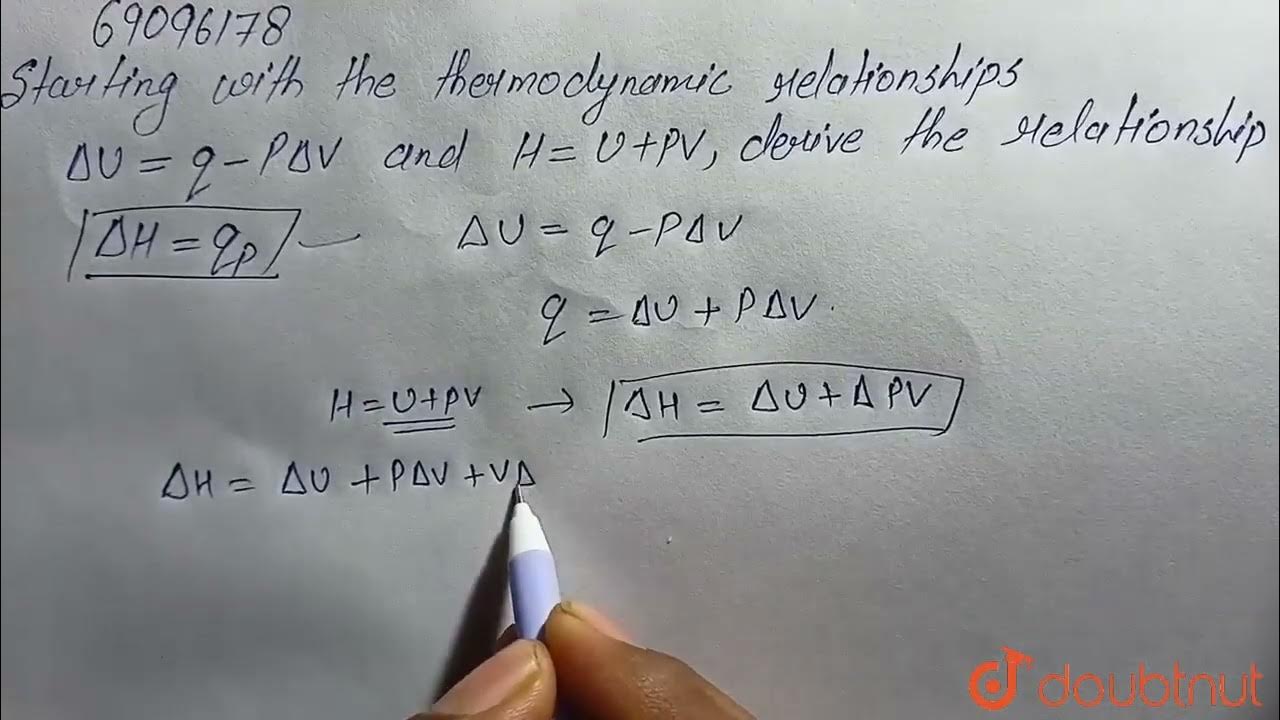 69096178
Starting with the thermodynamic relationships
ΔU = q - PΔV and H = U + PV, derive the relationship
ΔH = qp
ΔU = q - PΔV
q = ΔU + PΔV.
H = U + PV → ΔH = ΔU + ΔPV
ΔH = ΔU + PΔV + VΔ
doubtnut